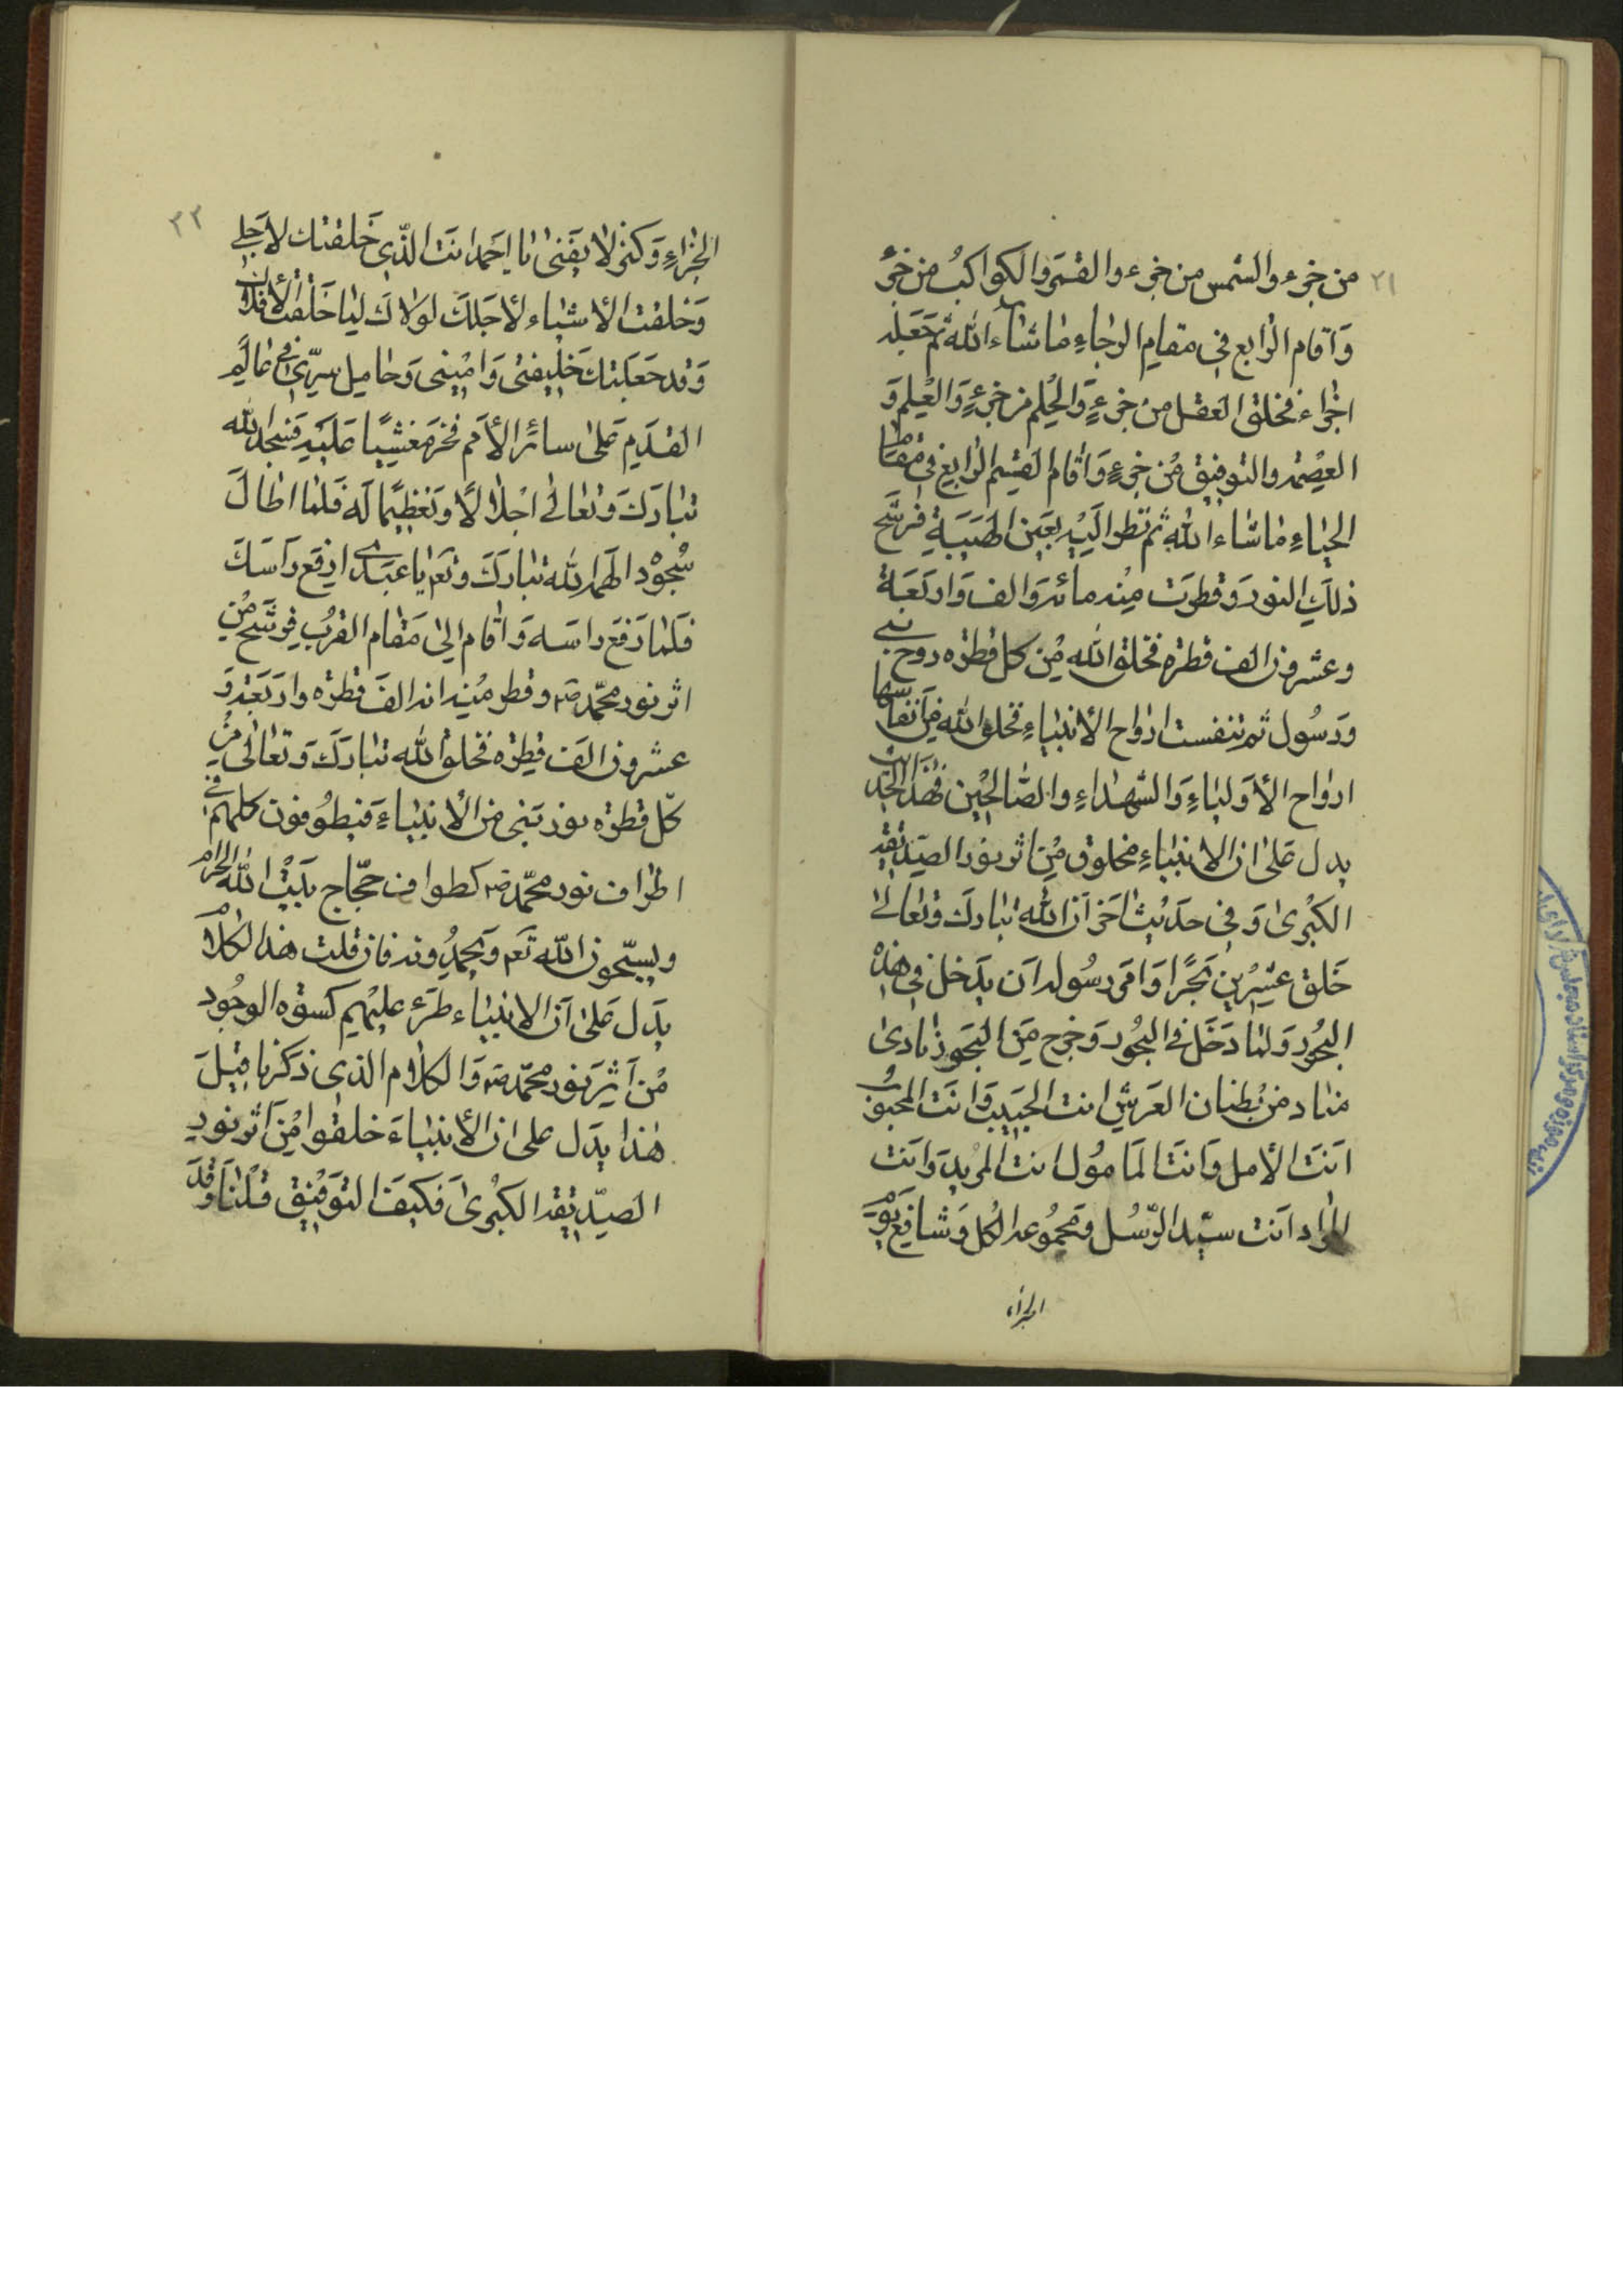 ٢١
من جزء والشمس من جزء والقمر والكواكب من جزء
وَاقام الرّابع في مقامِ الرجاءِ ماشاء اللّه ثم جَعَله
اجزاء فخلق العقل من جزءٍ وَالحِلم من جزءٍ وَالعِلم وَ
العِصْمه والتوفيق مِن جزءٍ وَاقام القسِم الرّابع في مقام
الحياءِ ماشاء اللّه ثم نظر اليه بعين الهَيبَةِ فرشّح
ذلك النور وَقطرَت مِنه مائه وَالف وَاربَعَة
وعشرون الف قطره فخلق اللّه مِن كل قطره روح نبى
وَرَسُول ثم تنفست ارواح الأنبياءِ فخلق اللّه مِن انفاسها
ارواح الأولياءِ وَالشهداءِ والصّالحين فهذا الحديث
يدل عَلى ان الانبياءِ مخلوق مِن اثر نور الصدّيقه
الكبرىٰ وَفى حديث اخر اَن اللّه تبارك وَتعالىٰ
خَلق عشرين بَحرًا وَامر رسُوله اَن يدخل في هذه
البحُور وَلما دَخَل في البحُور وَخرج مِن البَحور نادىٰ
مناد من بُطنان العَرش انت الحَبيب وَانت المحبوُب
انتَ الأمل وَانتَ المَأمُول انت المرُيد وَانت
المراد انت سيّد الرّسُل وَمجمُوعه الكُل وَشافع يَوْم
الجزاء
٢٢
الجزاءِ وَكنز لا يَفنى يا احَمد انَت الذّى خَلقتك لاجَلى
وَخلقت الأشياء لأجلكَ لولاك لما خَلَقت الأفلاك
وَقد جَعَلتك خَليفتى وَامينى وَحامِل سِرّى فى عٰالَم
القدَيم عَلى سائر الأمَم فخر مَغشيًا عَليه فَسَجد للّه
تبارَكَ وَتعالىٰ اجلالًا وَتعَظيمًا لَه فلما اطالَ
سُجوُد الهمه اللّه تبارَكَ وتعَم يا عَبدى ارفَع رَاسَكَ
فلما رَفع راسَه وَاقام الىٰ مَقام القربُ فرشَح مِن
اثر نور محمّد ص وقطر مِنه انه الفَ قطره واربَعَه وَ
عشرون الفَ قطره فخلق اللّه تبارَكَ وَتعالى مِن
كلّ قطره نور نبَى من الأنبياءَ فيطوُفون كلهم فى
اطراف نور محمّد ص كطواف حجّاج بَيْت اللّه الحرام
ويسبّحون اللّه تعَم وَيحمدُونه فان قلت هذا الكلام
يَدَل عَلىٰ اَن الانبياء طرء عليهُم كسوَه الوجُود
مِن اَثر نَور محمّد ص وَالكلام الذى ذكرنا قبلَ
هٰذا يدَل على ان الأنبياءَ خلقوا مِن اَثر نورِ
الصدّيقه الكبرىٰ فكيفَ التوَفيق قلنا وَقد